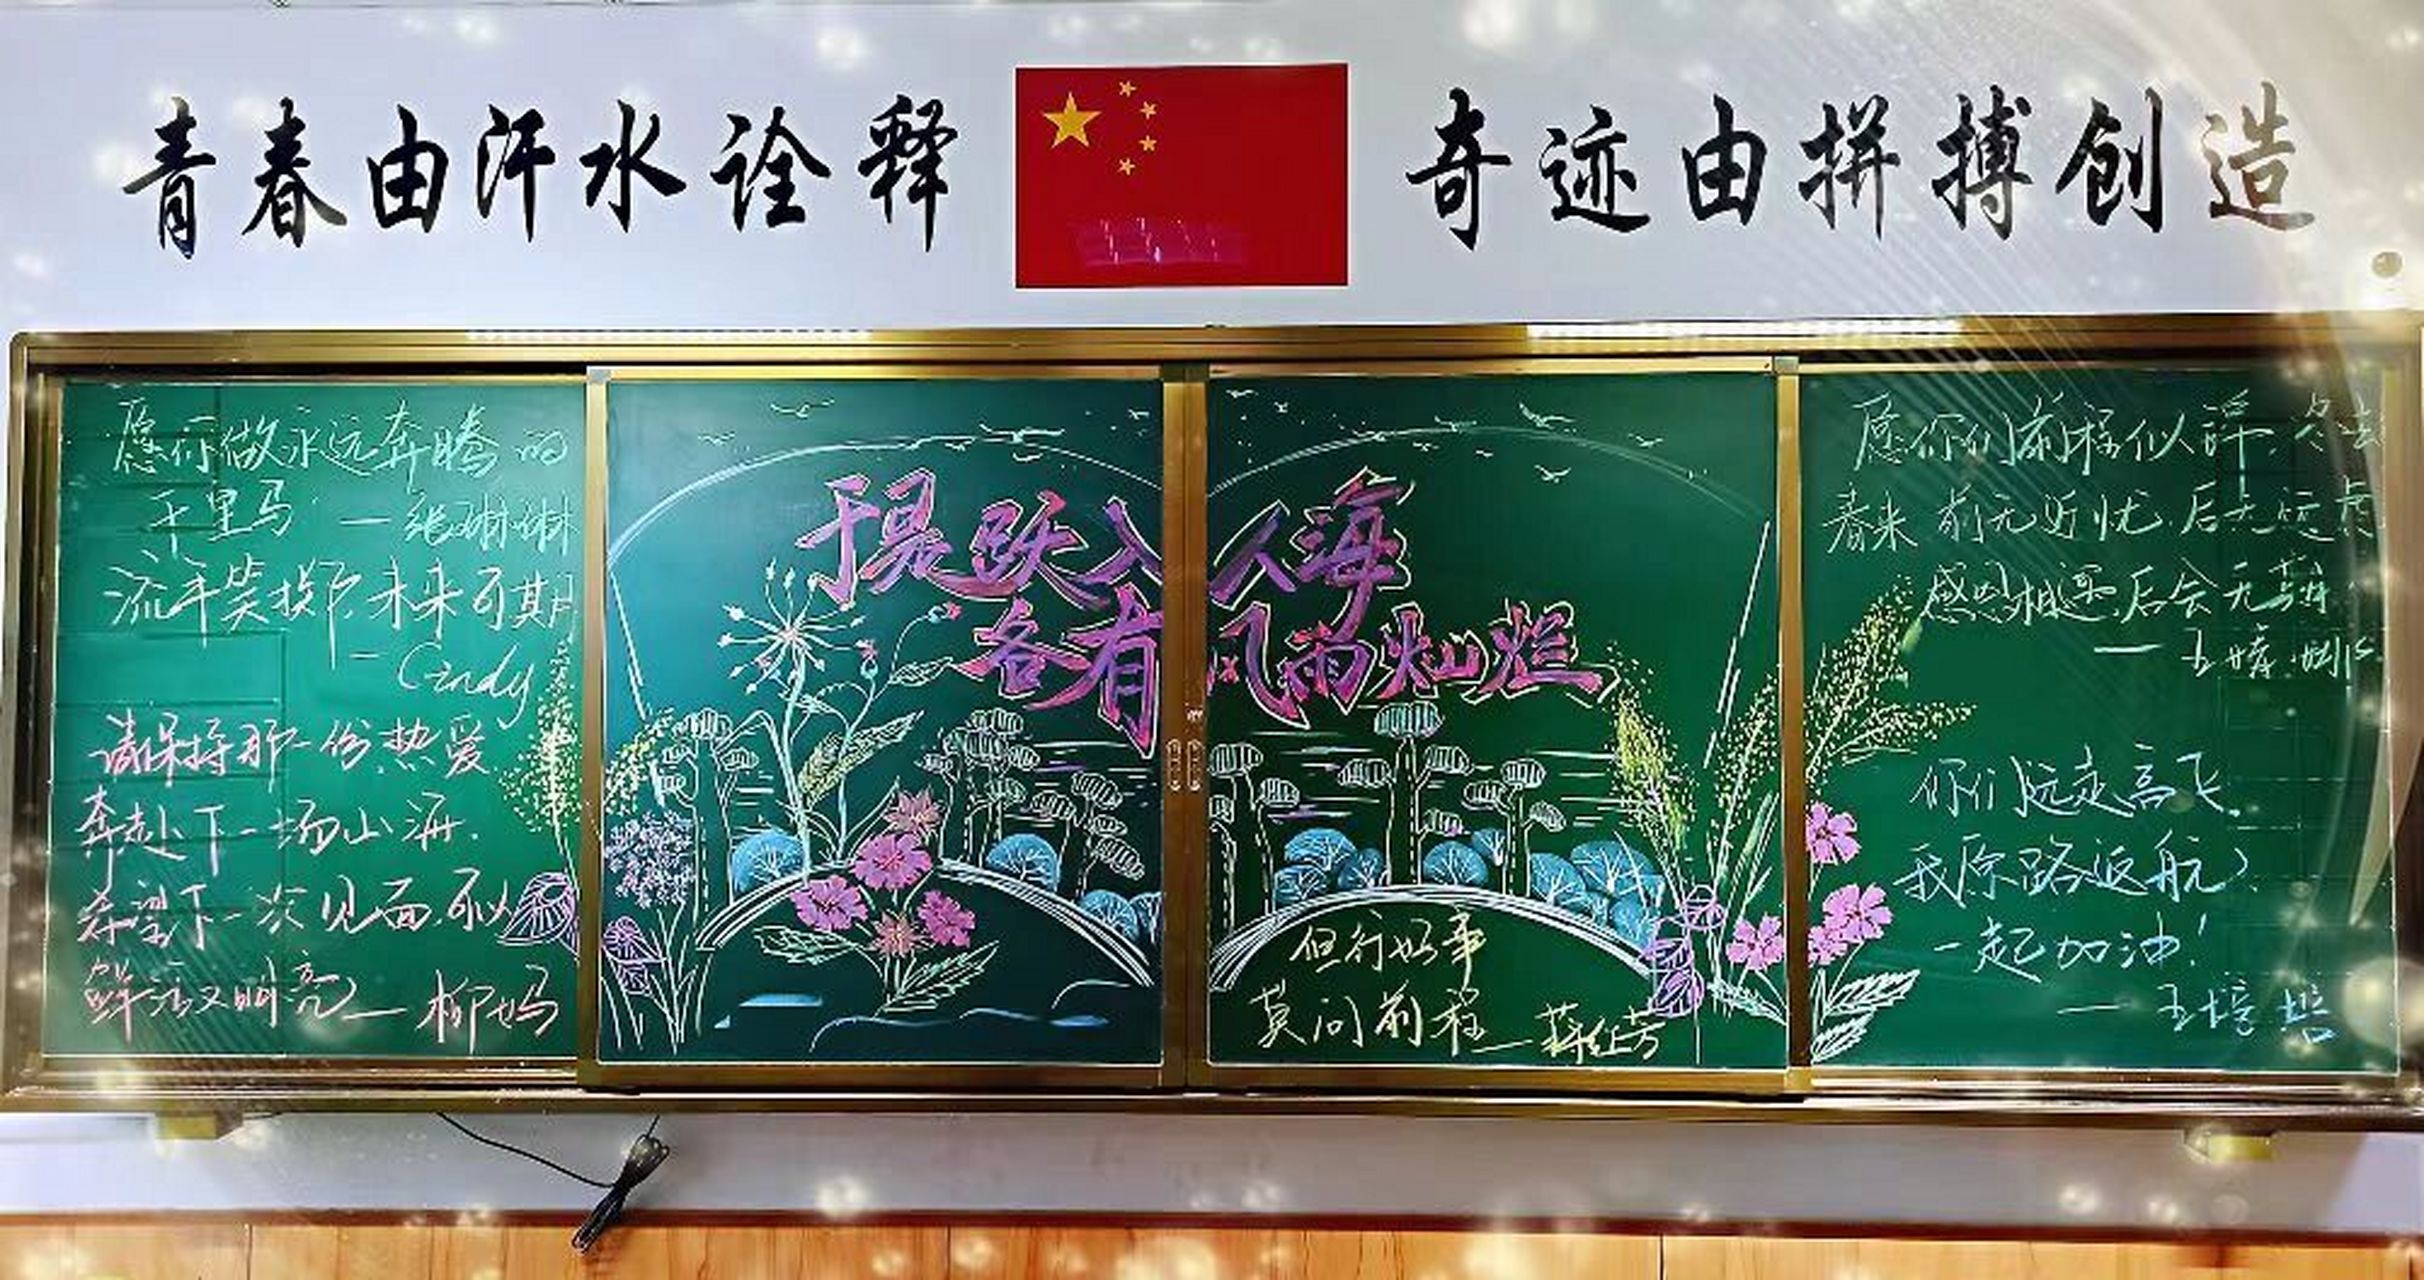 青春由汗水诠释
奇迹由拼搏创造
愿你做永远奔腾的
千里马
流年笑掷 未来可期
—Cindy
请保持那一份热爱
奔赴下一场山海.
希望下一次见面,可以
鲜活又明亮 — 柳妈
于是跃入人海
各有风雨灿烂
但行好事
莫问前程
愿你们前程似锦,冬去
春来 前无近忧,后无远虑
感恩相遇,后会无期
你们远走高飞,
我原路返航
一起加油!